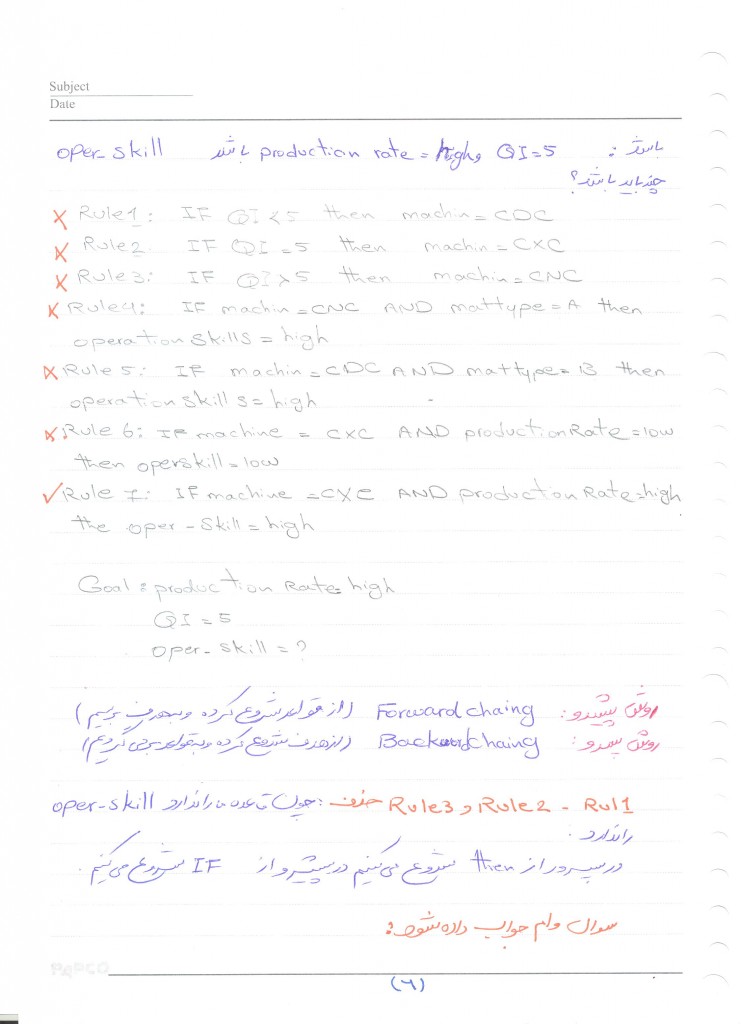 Subject
Date
باشد : QI=5 و production rate = high باشد oper-skill
چند باید باشد؟
× Rule1: IF QI<5 then machin=CDC
× Rule2. IF QI=5 then machin=CXC
× Rule3: IF QI>5 then machin=CNC
× Rule4: IF machin=CNC AND mattype=A then
operation skills=high
× Rule 5: IF machin=CDC AND mattype=B then
operation skills=high
×. Rule 6: IF machine = CXC AND productionRate=low
then operskill=low
✓ Rule 7: IF machine =CXC AND productionRate=high
the oper-skill=high
Goal: production Rate=high
QI=5
oper-skill=?
روش پیشرو: Forward chaing (از قواعد شروع کرده و به هدف برسیم)
روش پسرو: Backward chaing (از هدف شروع کرده و به قواعد برمی گردیم)
Rul1 - Rule2 و Rule3 حذف : چون قاعده ما را ندارد oper-skill
را ندارد.
در پسرو از then شروع می کنیم در پیشرو از IF شروع می کنیم.
سوال وام جواب داده شود:
PAPCO
(۶)